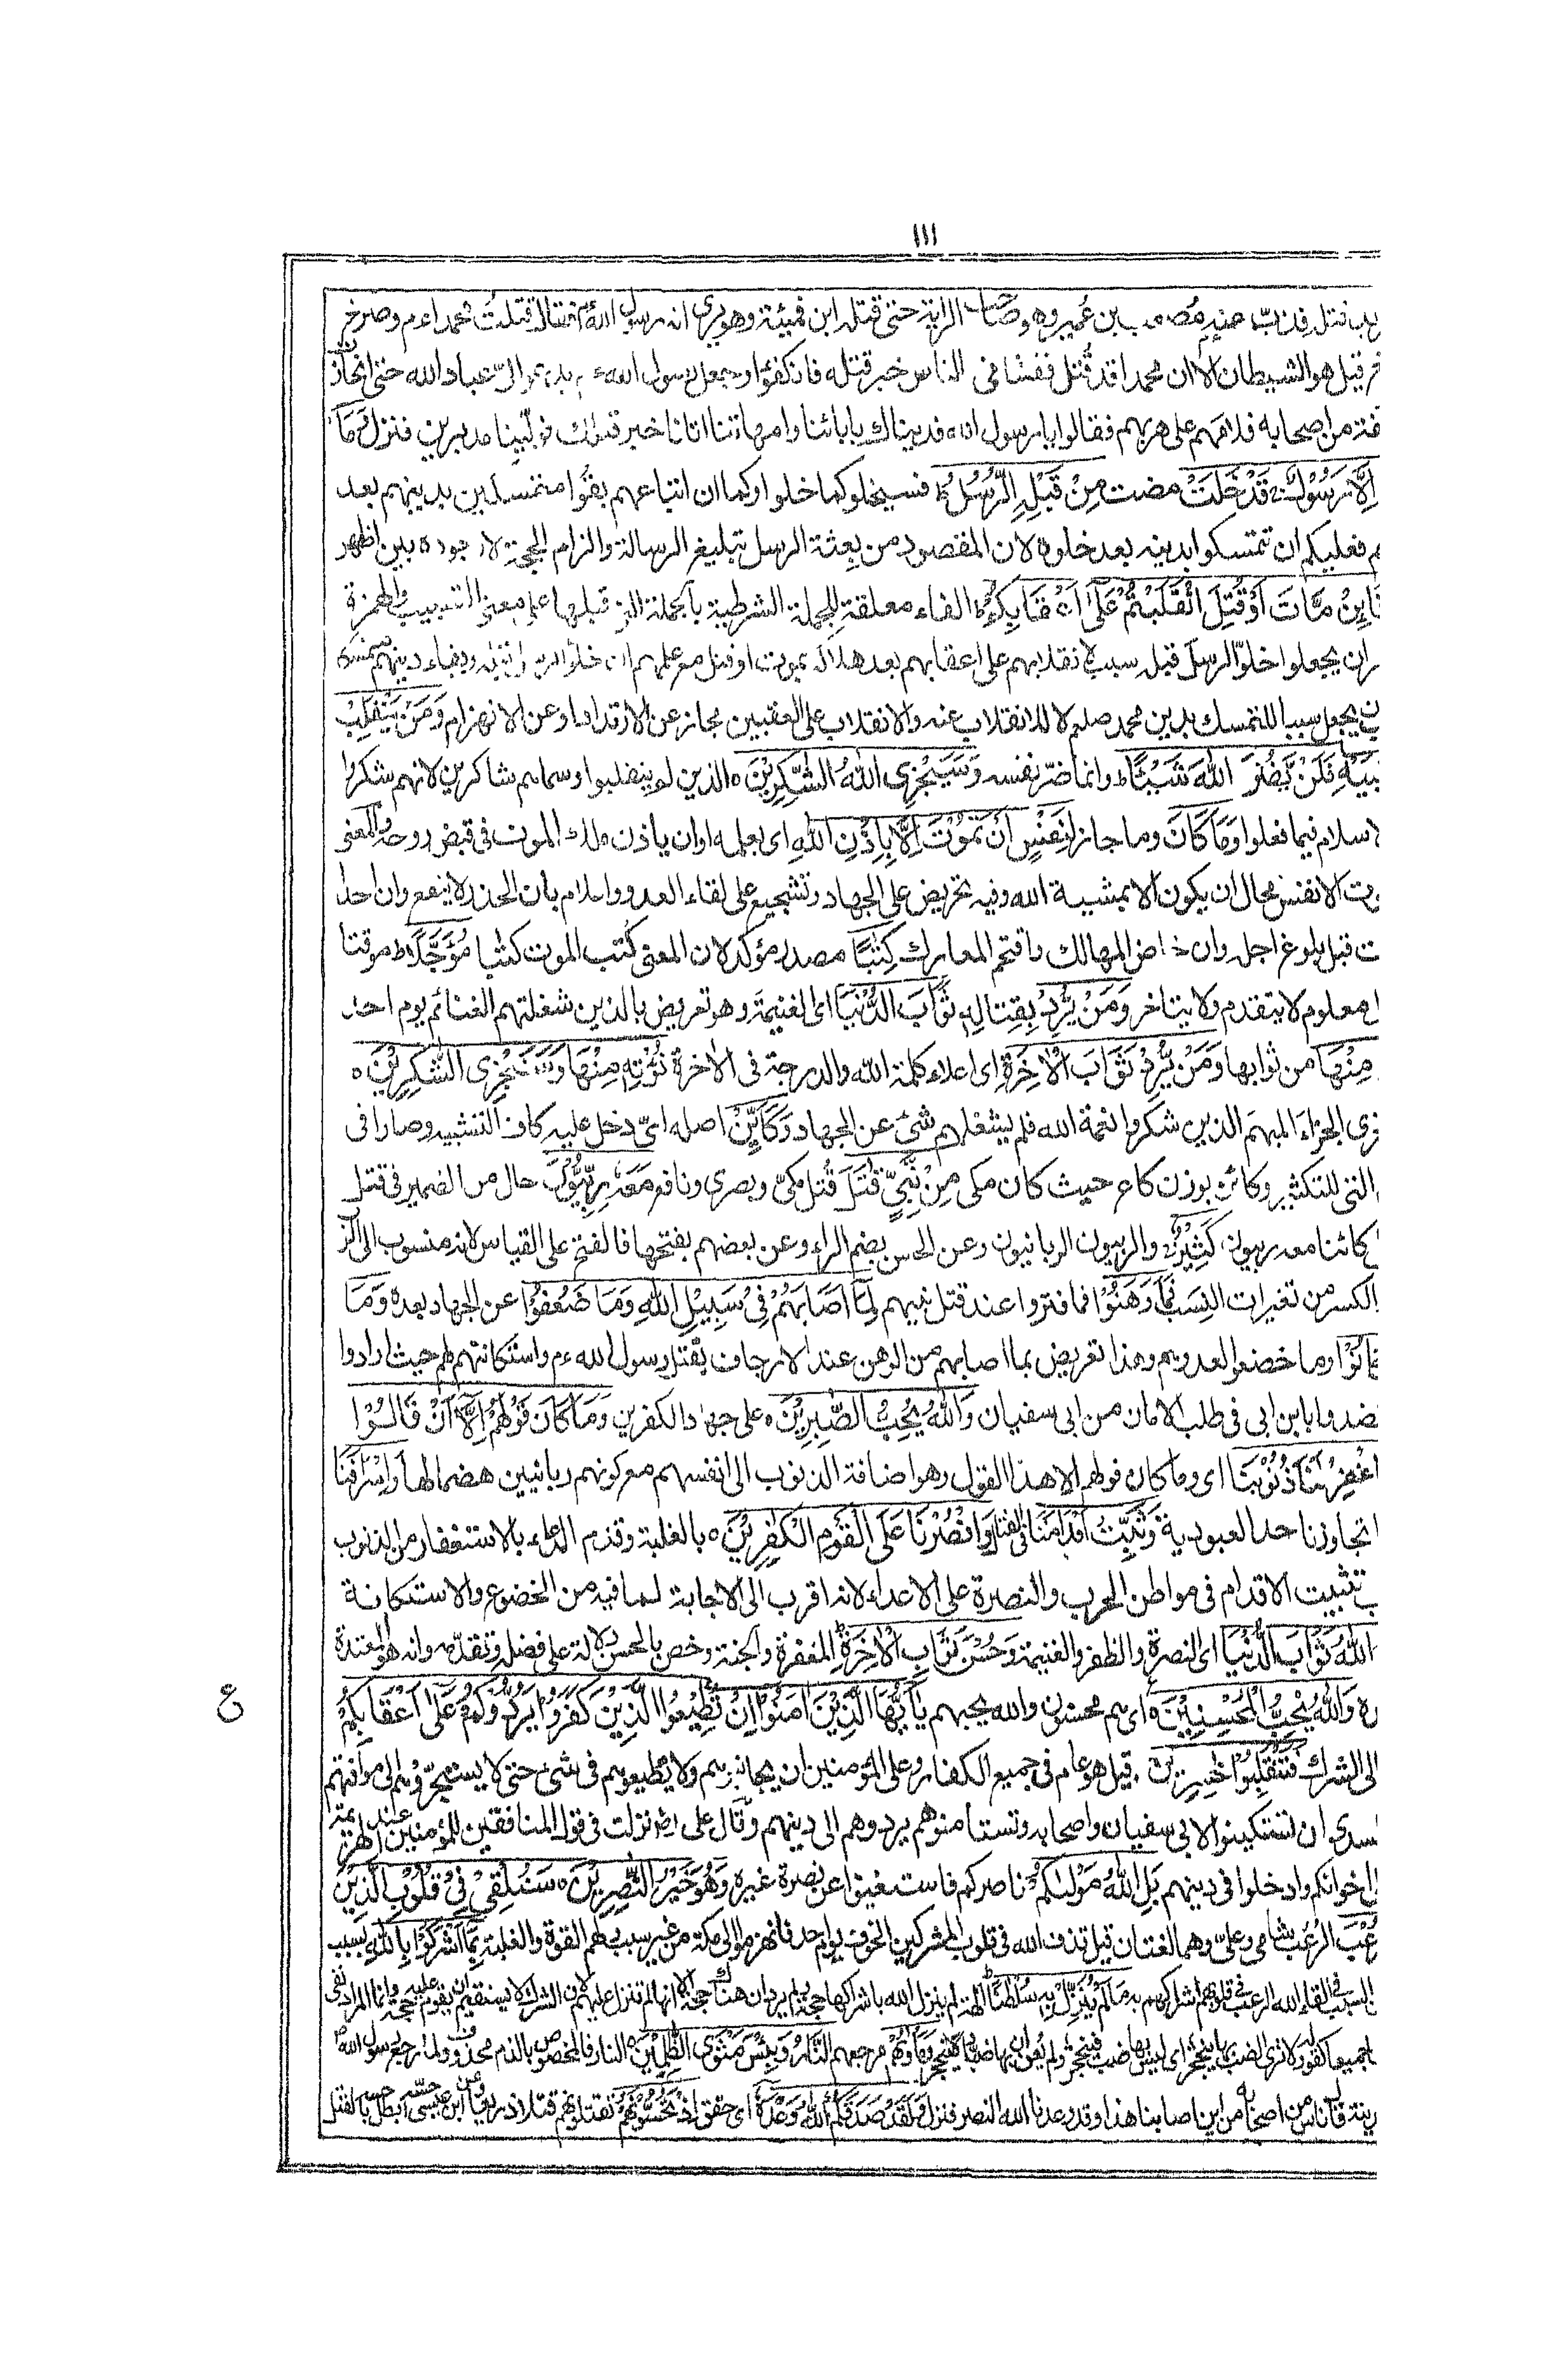 ١١١
فذبّ عنه مصعب بن عمير وهو صاحب الراية حتى قتله ابن قميئة وهو يرى انه رسول الله ءم فقال قتلت محمداءم وصرخ
قيل هو الشيطان الا ان محمدا قد قُتل ففشا فى الناس خبر قتله فانكفؤا وجعل رسول الله ءم يدعو الىّ عباد الله حتى انحاز
من اصحابه فلامهم على هربهم فقالوا يا رسول الله فديناك بابائنا وامهاتنا اتانا خبر قتلك فولّينا مدبرين فنزل وَمَا
اِلَّا رَسُوْلٌ قَدْ خَلَتْ مضت مِنْ قَبْلِهِ الرُّسُلُ فسيخلو كما خلوا وكما ان اتباعهم بقُوا متمسكين بدينهم بعد
فعليكم ان تتمسكوا بدينه بعد خلوه لان المقصود من بعثة الرسل تبليغ الرسالة والزام الحجة لا وجوده بين اظهر
مَّاتَ اَوْ قُتِلَ انْقَلَبْتُمْ عَلٰٓى اَعْقَابِكُمْ الفاء معلقة للجملة الشرطية بالجملة التى قبلها على معنى التسبيب والهمزة
ان يجعلوا خلوّ الرسل قبله سببا لانقلابهم على اعقابهم بعد هلاكه بموت او قتل مع علمهم ان خلوّ الرسل قبله وبقاء دينهم متمسكا
يجعل سببا للتمسك بدين محمد صلعم لا للانقلاب عنه والانقلاب على العقبين مجاز عن الارتداد او عن الانهزام وَمَنْ يَّنْقَلِبْ
فَلَنْ يَّضُرَّ اللّٰهَ شَيْـًٔا وانما ضرّ نفسه وَسَيَجْزِى اللّٰهُ الشّٰكِرِيْنَ ٥ الذين لم ينقلبوا وسماهم شاكرين لانهم شكروا
فيما فعلوا وَمَا كَانَ وما جاز لِنَفْسٍ اَنْ تَمُوْتَ اِلَّا بِاِذْنِ اللّٰهِ اى بعلمه او ان ياذن ملك الموت فى قبض روحه والمعنى
الانفس محال ان يكون الا بمشيية الله وفيه تحريض على الجهاد وتشجيع على لقاء العدو واعلام بان الحذر لا ينفع وان احدا
قبل بلوغ اجله وان خاض المهالك واقتحم المعارك كِتٰبًا مصدر مؤكد لان المعنى كُتب الموت كتٰبا مُؤَجَّلًا ط موقتا
معلوم لا يتقدم ولا يتاخر وَمَنْ يُّرِدْ بِقِتالِهٖ ثَوَابَ الدُّنْيَا اى الغنيمة وهو تعريض بالذين شغلتهم الغنائم يوم احد
مِنْهَا من ثوابها وَمَنْ يُّرِدْ ثَوَابَ الْاٰخِرَةِ اى اعلاء كلمة الله والدرجة فى الاخرة نُؤْتِهٖ مِنْهَا وَسَنَجْزِى الشّٰكِرِيْنَ ٥
الجزاءَ المبهمَ الذين شكروا نعمة الله فلم يشغلهم شئ عن الجهاد وَكَاَيِّنْ اصله اىّ دخل عليه كاف التشبيه وصارا فى
التى للتكثير وكائن بوزن كاع حيث كان مكى مِنْ نَّبِيٍّ قٰتَلَ قُتل مكىّ وبصرى ونافع مَعَهٗ رِبِّيُّوْنَ حال من الضمير فى قتل
كائنا معه ربيون كَثِيْرٌ والربيون الربانيون وعن الحسن بضم الراء وعن بعضهم بفتحها فالفتح على القياس لانه منسوب الى الرّ
الكسر من تغيرات النسب فَمَا وَهَنُوْا فما فتروا عند قتل نبيهم لِمَآ اَصَابَهُمْ فِىْ سَبِيْلِ اللّٰهِ وَمَا ضَعُفُوْا عن الجهاد بعده وَمَا
وما خضعوا لعدوهم وهذا تعريض بما اصابهم من الوهن عند الارجاف بقتل رسول الله ءم واستكانتهم لهم حيث ارادوا
بابن ابى فى طلب الامان من ابى سفيان وَاللّٰهُ يُحِبُّ الصّٰبِرِيْنَ ٥ على جهاد الكفرين وَمَا كَانَ قَوْلَهُمْ اِلَّآ اَنْ قَالُوْا
اغْفِرْ لَنَا ذُنُوْبَنَا اى وما كان قولهم الا هذا القول وهو اضافة الذنوب الى انفسهم مع كونهم ربانيين هضما لها وَاِسْرَافَنَا
تجاوزنا حد العبودية وَثَبِّتْ اَقْدَامَنَا فى القتال وَانْصُرْنَا عَلَى الْقَوْمِ الْكٰفِرِيْنَ ٥ بالغلبة وقدم الدعاء بالاستغفار من الذنوب
تثبيت الاقدام فى مواطن الحرب والنصرة على الاعداء لانه اقرب الى الاجابة لما فيه من الخضوع والاستكانة
اللّٰهُ ثَوَابَ الدُّنْيَا اى النصرة والظفر والغنيمة وَحُسْنَ ثَوَابِ الْاٰخِرَةِ المغفرة والجنة وخص بالحسن دلالة على فضله وتقدّمه وانه هو المعتد
وَاللّٰهُ يُحِبُّ الْمُحْسِنِيْنَ ٥ اى هم محسنون والله يحبهم يٰٓاَيُّهَا الَّذِيْنَ اٰمَنُوْٓا اِنْ تُطِيْعُوا الَّذِيْنَ كَفَرُوْا يَرُدُّوْكُمْ عَلٰٓى اَعْقَابِكُمْ
ع
الى الشرك فَتَنْقَلِبُوْا خٰسِرِيْنَ قيل هو عام فى جميع الكفار وعلى المؤمنين ان يجانبوهم ولا يطيعوهم فى شئ حتى لا يستجرّوهم الى موافقتهم
ان تستكينوا لابى سفيان واصحابه وتستامنوهم يردوهم الى دينهم وقال على رضه نزلت فى قول المنافقين للمؤمنين عند الهزيمة
اخوانكم وادخلوا فى دينهم بَلِ اللّٰهُ مَوْلٰىكُمْ ناصركم فاستغنوا عن نصرة غيره وَهُوَ خَيْرُ النّٰصِرِيْنَ ٥ سَنُلْقِىْ فِىْ قُلُوْبِ الَّذِيْنَ
الرعُب شامى وعلىّ وهما لغتان قيل قذف الله فى قلوب المشركين الخوف يوم احد فانهزموا الى مكة من غير سبب ولهم القوة والغلبة بِمَآ اَشْرَكُوْا بِاللّٰهِ بسبب
القاء الله الرعب فى قلوبهم اشراكهم به مَا لَمْ يُنَزِّلْ بِهٖ سُلْطٰنًا الهة لم ينزل الله باشراكها حجة ولم يرد ان هناك حجة الا انها لم تنزل عليهم لان الشرك لا يستقيم ان يقوم عليه حجة وانما المراد نفى
جميعا كقوله ولا ترى الضب بها ينجحر اى ليس بها ضب فينجحر ولم يعن ان بها ضبا ولا ينجحر وَمَاْوٰىهُمْ مرجعهم النَّارُ وَبِئْسَ مَثْوَى الظّٰلِمِيْنَ ٥ النار فالمخصوص بالذم محذوف ولما رجع رسول الله
ناس من اصحابه من اين اصابنا هذا وقد وعدنا الله النصر فنزل وَلَقَدْ صَدَقَكُمُ اللّٰهُ وَعْدَهٗٓ اى حقق اِذْ تَحُسُّوْنَهُمْ تقتلونهم قتلا ذريعا وعن ابن عيسى حسّه ابطل حسه بالقتل